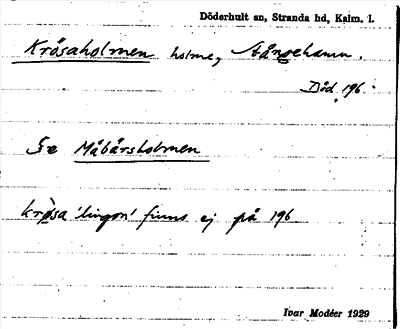 Döderhult sn, Stranda hd, Kalm. l.
Krösaholmen holme, Stångehamn.
Död. 196.
Se Måbärsholmen
krösa 'lingon' finns ej på 196
Ivar Modéer 1929